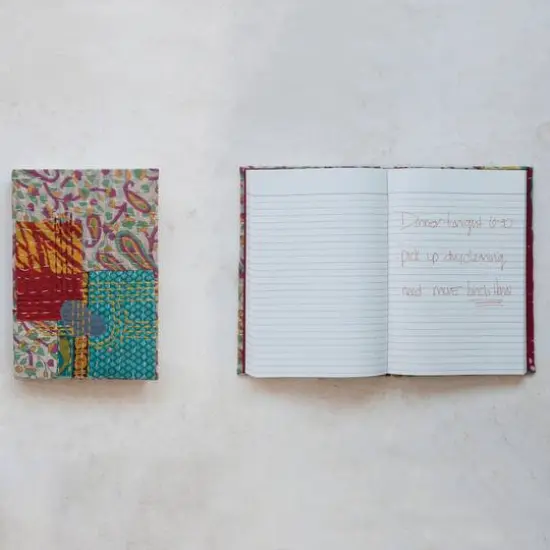 Dinner tonight is @ 7:
pick up drycleaning,
need more